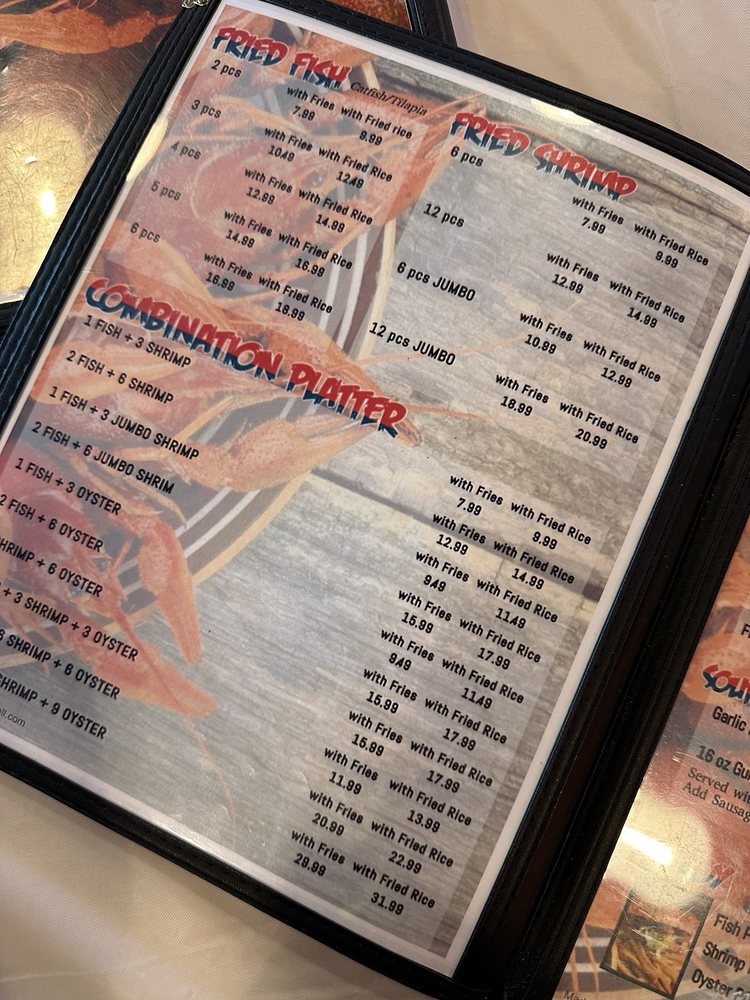 FRIED FISH Catfish/Tilapia
2 pcs
with Fries with Fried rice
7.99 9.99
3 pcs
with Fries with Fried Rice
10.49 12.49
4 pcs
with Fries with Fried Rice
12.99 14.99
5 pcs
with Fries with Fried Rice
14.99 16.99
6 pcs
with Fries with Fried Rice
16.99 18.99
FRIED SHRIMP
6 pcs
with Fries with Fried Rice
7.99 9.99
12 pcs
with Fries with Fried Rice
12.99 14.99
6 pcs JUMBO
with Fries with Fried Rice
10.99 12.99
12 pcs JUMBO
with Fries with Fried Rice
18.99 20.99
COMBINATION PLATTER
1 FISH + 3 SHRIMP
with Fries with Fried Rice
7.99 9.99
2 FISH + 6 SHRIMP
with Fries with Fried Rice
12.99 14.99
1 FISH + 3 JUMBO SHRIMP
with Fries with Fried Rice
9.49 11.49
2 FISH + 6 JUMBO SHRIM
with Fries with Fried Rice
15.99 17.99
1 FISH + 3 OYSTER
with Fries with Fried Rice
9.49 11.49
2 FISH + 6 OYSTER
with Fries with Fried Rice
15.99 17.99
+ 6 OYSTER
with Fries with Fried Rice
15.99 17.99
+ 3 SHRIMP + 3 OYSTER
with Fries with Fried Rice
11.99 13.99
SHRIMP + 6 OYSTER
with Fries with Fried Rice
20.99 22.99
+ 9 OYSTER
with Fries with Fried Rice
29.99 31.99
Garlic
16 oz
Served
Add
Fish
Shrimp
Oyster